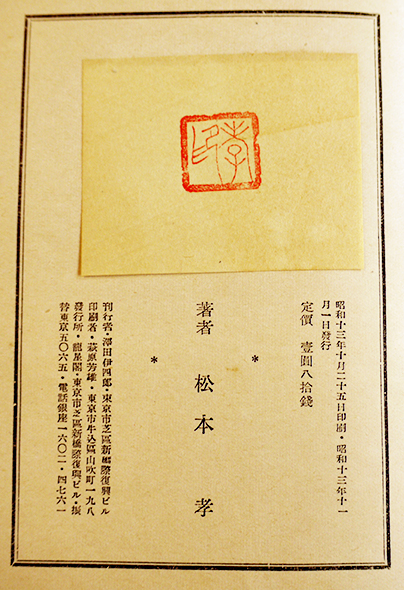 孝印
昭和十三年十月二十五日印刷・昭和十三年十一
月一日發行
定價 壹圓八拾錢
*
著者 松本孝
*
刊行者・澤田伊四郎・東京市芝區新橋際復興ビル
印刷者・萩原芳雄・東京市牛込區山吹町一九八
發行所・龍星閣・東京市芝區新橋際復興ビル・振
替東京五〇六五・電話銀座一六〇二・四七六一